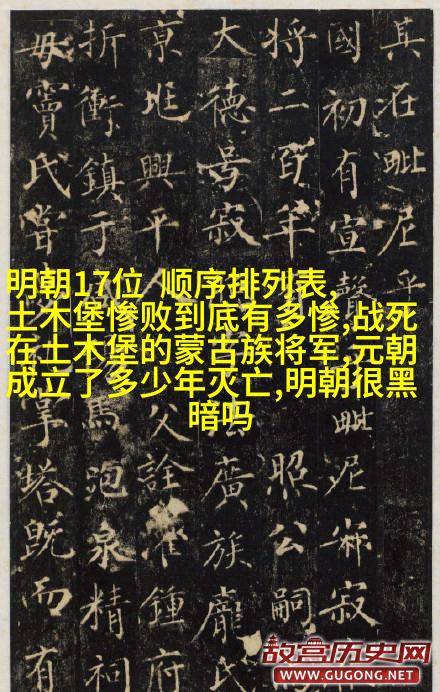 其在毗尼乎
國初有宣聲
毗尼寂
將二百年
照公嗣
大德号寂
廣族龐氏
京兆興平人
父詮鍾府
折衝鎮于
馬跑泉精祠
毋竇氏嘗
掌塔既而有
明朝17位 顺序排列表,
土木堡惨败到底有多惨,战死
在土木堡的蒙古族将军,元朝
成立了多少年灭亡,明朝很黑
暗吗
故宫历史网
WWW.GUGONG.NET